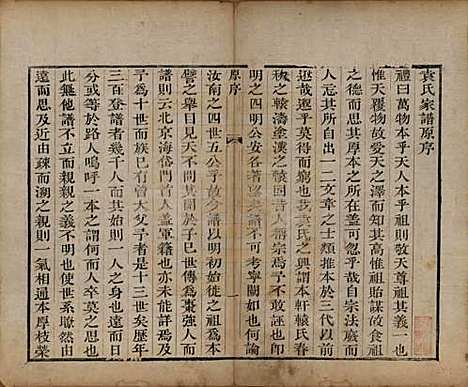 袁氏家譜原序
禮曰萬物本乎天人本乎祖則敬天尊祖其義一也
惟天覆物故愛天之澤而知其高惟祖貽謀故食祖
之德而思其厚本之不忘蓋可乎哉自宗法廢而
人忘其所自出一二文章之士頗推本於三代以前
遐哉邈乎而不可窮也則思我袁氏之興謂本轅氏春
秋之轅濤塗漢之轅固昔人謂宗爲予不敢誣也即
明之四明公安各著望 族譜不可考寧闕如也何論
原序
一
汝南之四世五公乎故今譜以明初始徙之祖爲本
譬之舉頭見天不問其關於子已世傳爲棗強人而
譜則云北京海岱門首人蓋軍籍也亦未所能詳已
予爲十世而族已有曾大父予者是十三世矣歷年
三百登譜者千人而其始則一人之身也遠而日
分或等於路人嗚呼一本之謂何而人卒莫之思
此無他譜不立親親之義不明也使世系瞭然由
遠而思及近由疎而溯之親則一氣相通本厚枝榮